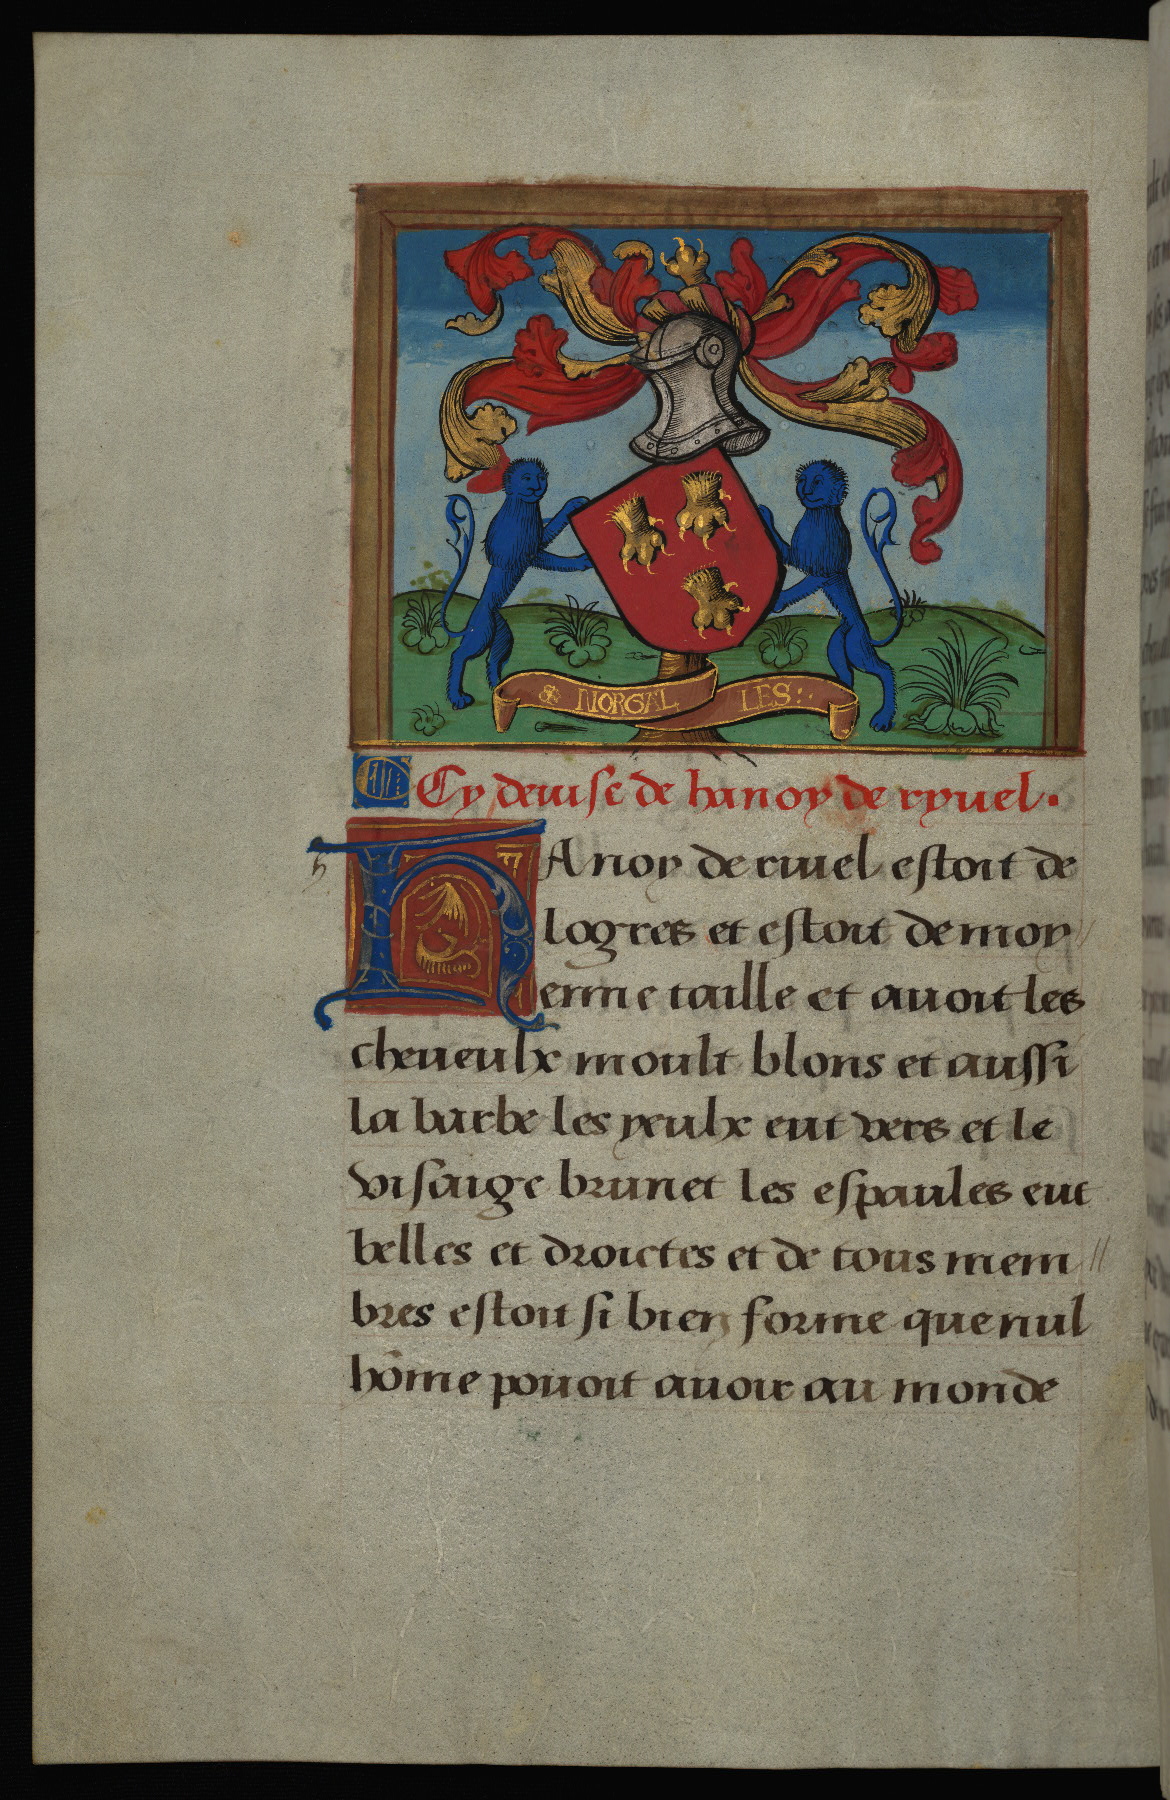 & NORGAL LES:
Cy deuise de hanoy de ryuel.
h
hAnoy de riuel estoit de
logres et estoit de moy
enne taille et auoit les
cheueulx moult blons et aussi
la barbe les yeulx eut vers et le
visaige brunet les espaules eut
belles et droictes et de tous mem //
bres estoit si bien forme que nul
hōme pouoit auoir au monde